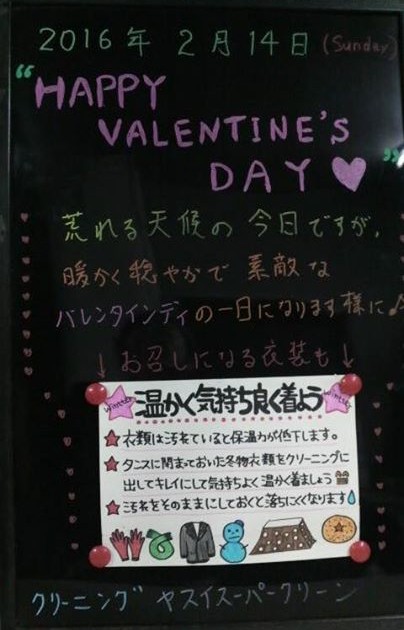 2016年 2月14日 (Sunday)
"HAPPY
VALENTINE'S
DAY♥"
荒れる天候の今日ですが、
暖かく穏やかで素敵な
バレンタインディの一日になります様に♪
↓お召しになる衣装も↓
Winter 温かく気持ち良く着よう Winter
★衣類は汚れていると保温力が低下します。
★タンスに閉まっておいた冬物衣類をクリーニングに
出してキレイにして気持ちよく温かく着ましょう
★汚れをそのままにしておくと落ちにくくなります
クリーニング ヤスイスーパークリーン